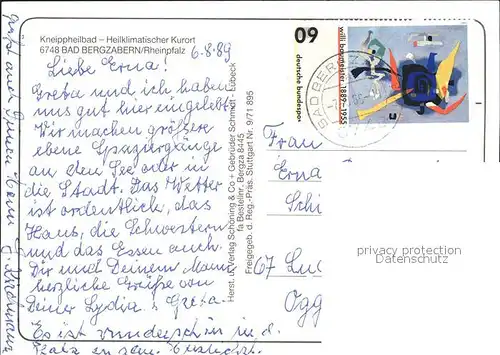 Kneippheilbad – Heilklimatischer Kurort
6748 BAD BERGZABERN/Rheinpfalz
6.8.89
Liebe Erna!
Greta und ich haben
uns gut hier eingelebt.
Wir machen größere
ebene Spaziergänge
an den See oder in
die Stadt. Das Wetter
ist ordentlich, das
Haus, die Schwestern
und das Essen auch.
Dir und Deinem Mann
herzliche Grüße von
Deiner Lydia u. Greta.
Es ist wunderschön in d.
Herst. u. Verlag Schöning & Co + Gebrüder Schmidt · Lübeck
fa Bestellnr. Bergza 8445
Freigegeb. d. Reg.-Präs. Stuttgart Nr. 9/71 895
60
deutsche bundespo
willi baumeister 1889-1955
BAD BERGZ
Frau
Erna
Schi
67 Lu
Ogg
privacy protection
www.ansichtskarten-center.de